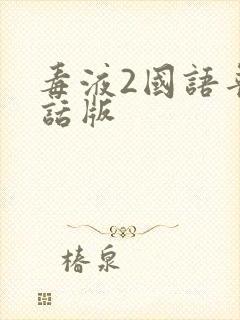 毒液2國語
話版
椿泉